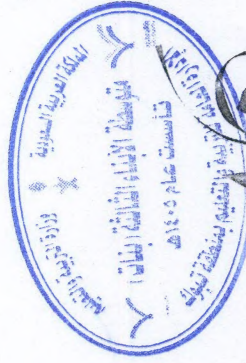 المملكة العربية السعودية
وزارة التربية والتعليم
متوسطة الأبناء الثالثة (بنات)
تأسست عام ١٤٠٥هـ
والتعليم بمنطقة تبوك